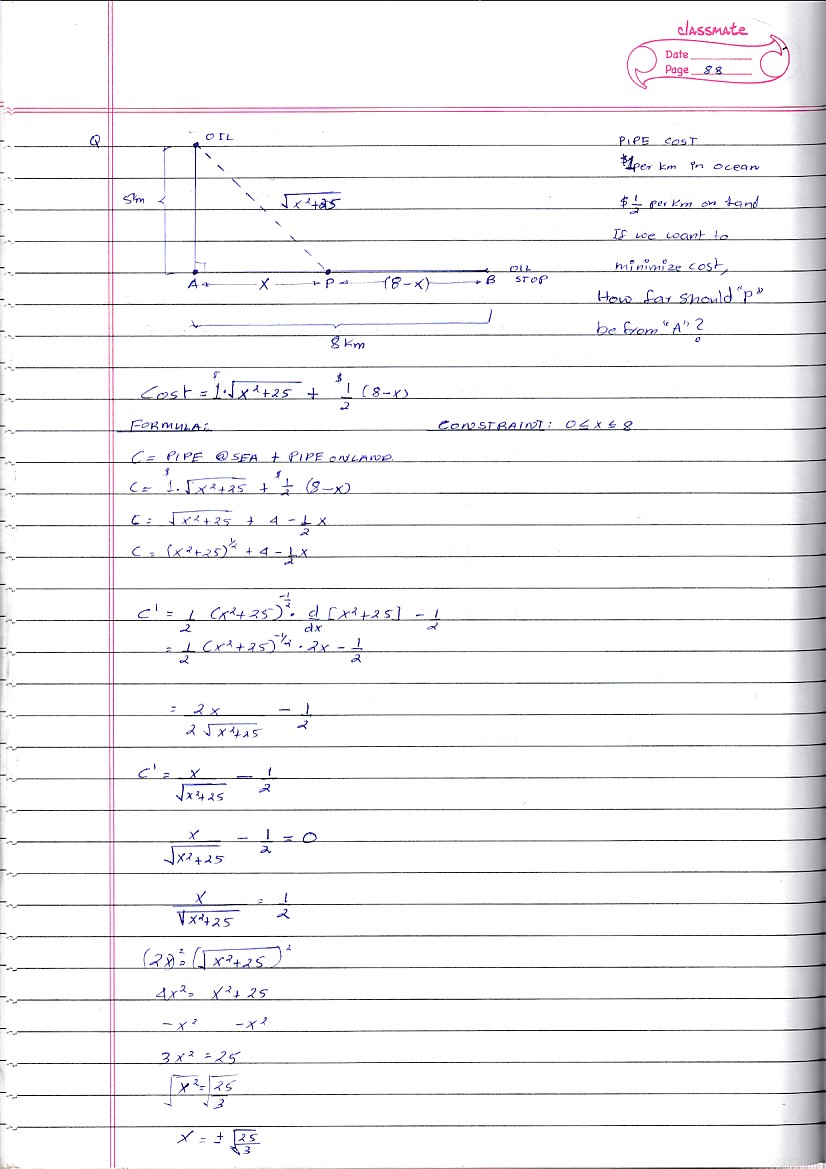 classmate
Date
Page 88
Q
OIL
PIPE COST
$1 per km in ocean
5km
√x²+25
$ 1/2 per km on land
If we want to
minimize cost,
How far should "P"
be from "A"?
A
x
P
(8-x)
B
OIL STOP
8 km
Cost = $1·√x²+25 + $1/2 (8-x)
FORMULA:
CONSTRAINT: 0≤x≤8
C = PIPE @ SEA + PIPE ON LAND.
C = $1·√x²+25 + $1/2 (8-x)
C = √x²+25 + 4 - 1/2 x
C = (x²+25)^1/2 + 4 - 1/2 x
C' = 1/2 (x²+25)^-1/2 · d/dx [x²+25] - 1/2
= 1/2 (x²+25)^-1/2 · 2x - 1/2
= 2x / 2√x²+25 - 1/2
C' = x / √x²+25 - 1/2
x / √x²+25 - 1/2 = 0
x / √x²+25 = 1/2
(2x)² = (√x²+25)²
4x² = x²+25
-x² -x²
3x² = 25
√x² = √25/3
x = ± √25/3